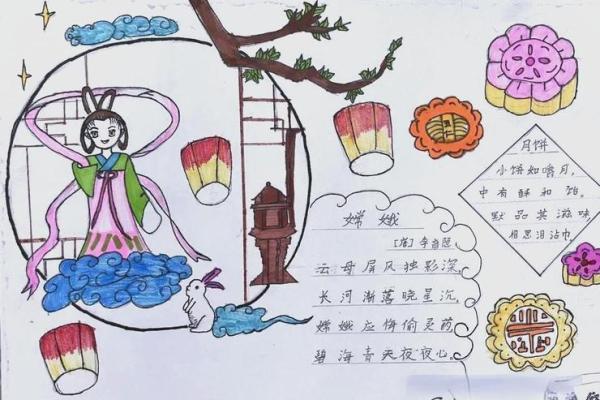 嫦娥
[唐]李商隐
云母屏风独影深,
长河渐落晓星沉,
嫦娥应悔偷灵药,
碧海青天夜夜心。
月饼
小饼如嚼月,
中有酥和饴。
默品其滋味,
相思泪沾巾。